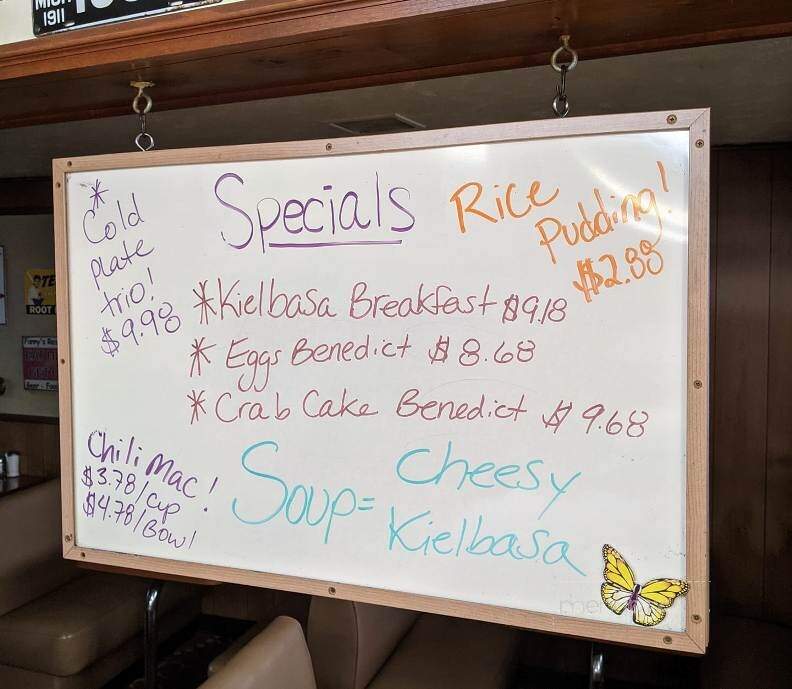 1911
Specials
Rice
Pudding!
$2.88
*
Cold
plate
trio!
$9.98
*Kielbasa Breakfast $9.18
* Eggs Benedict $8.68
* Crab Cake Benedict $9.68
Chili Mac!
$3.78/cup
$4.78/Bowl
Soup= Cheesy
Kielbasa
ROOT